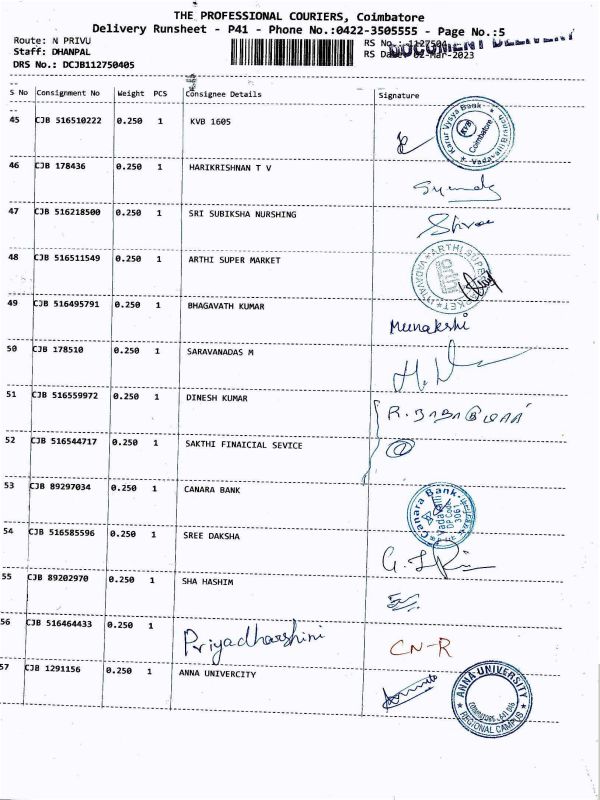 THE PROFESSIONAL COURIERS, Coimbatore
Delivery Runsheet - P41 - Phone No.:0422-3505555 - Page No.:5
Route: N PRIVU
RS No.:
Staff: DHANPAL
RS Date: 02-Mar-2023
DOCUMENT DELIVERY
DRS No.: DCJB112750405
S No Consignment No Weight PCS Consignee Details Signature
45 CJB 516510222 0.250 1 KVB 1605
Karur Vysya Bank
KVB
Coimbatore
Vadavalli Branch
46 CJB 178436 0.250 1 HARIKRISHNAN T V
47 CJB 516218500 0.250 1 SRI SUBIKSHA NURSHING
48 CJB 516511549 0.250 1 ARTHI SUPER MARKET
ARTHI SUPER MARKET
arthi
49 CJB 516495791 0.250 1 BHAGAVATH KUMAR Meenakshi
50 CJB 178510 0.250 1 SARAVANADAS M
51 CJB 516559972 0.250 1 DINESH KUMAR
52 CJB 516544717 0.250 1 SAKTHI FINAICIAL SEVICE
53 CJB 89297034 0.250 1 CANARA BANK
Canara Bank
Vadavalli
DP Code
54 CJB 516585596 0.250 1 SREE DAKSHA
55 CJB 89202970 0.250 1 SHA HASHIM
56 CJB 516464433 0.250 1 Priyadharshini CN-R
57 CJB 1291156 0.250 1 ANNA UNIVERCITY
ANNA UNIVERSITY
REGIONAL CAMPUS